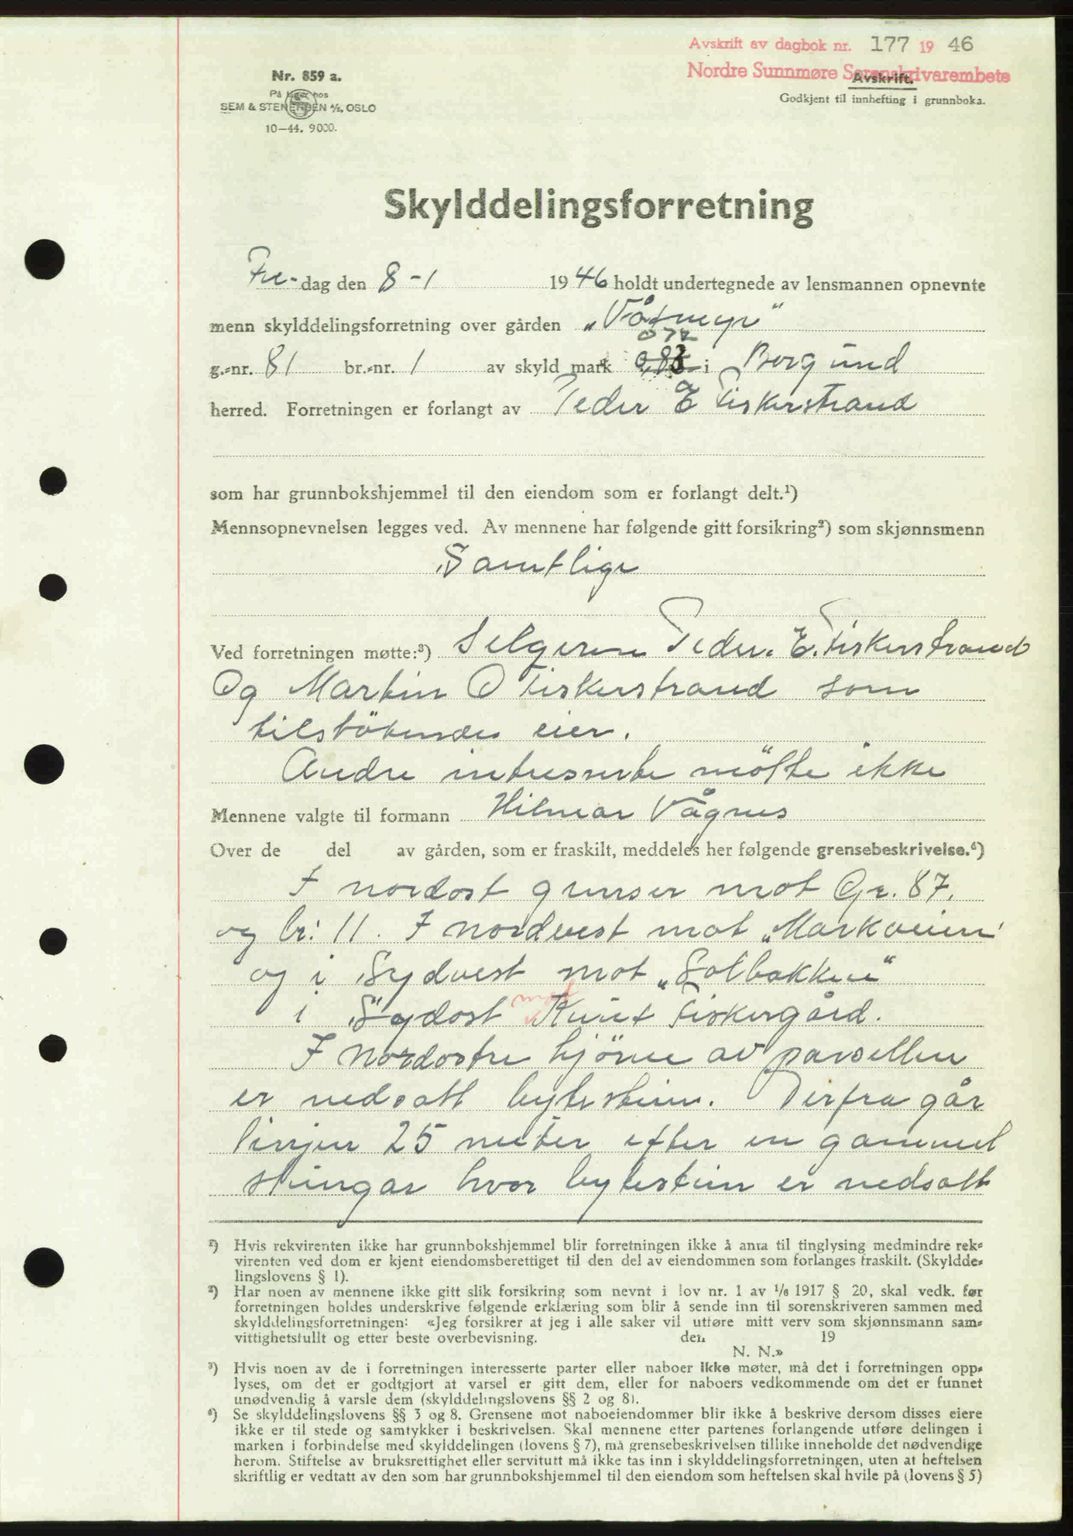 Avskrift av dagbok nr. 177 1946
Nordre Sunnmøre Sorenskrivarembete
Nr. 859 a.
På lager hos
SEM & STENERSEN A/S, OSLO
10-44. 9000.
Avskrift.
Godkjent til innhefting i grunnboka.
Skylddelingsforretning
Fre-dag den 8-1 1946 holdt undertegnede av lensmannen opnevnte
menn skylddelingsforretning over gården „Våtmyr"
077
g.-nr. 81 br.-nr. 1 av skyld mark 0,83 i Borgund
herred. Forretningen er forlangt av Peder E Fiskerstrand
som har grunnbokshjemmel til den eiendom som er forlangt delt.¹)
Mennsopnevnelsen legges ved. Av mennene har følgende gitt forsikring²) som skjønnsmenn
Samtlige
Ved forretningen møtte:³) Selgeren Peder E. Fiskerstrand
Og Martin O Fiskerstrand som
tilstötendes eier.
Andre intresserte mötte ikke
Mennene valgte til formann Hilmar Vågnes
Over de del av gården, som er fraskilt, meddeles her følgende grensebeskrivelse.⁴)
I nordost grenser mot Gr. 87.
og br: 11. I nordvest mot „Markveien"
og i Sydvest mot „Solbakken"
i Sydost mot Knut Fiskergård.
I Nordostre hjörne av parsellen
er nedsatt bytestein. Derfra går
linjen 25 meter efter en gammel
steingar hvor bytestein er nedsatt
¹) Hvis rekvirenten ikke har grunnbokshjemmel blir forretningen ikke å anta til tinglysing medmindre rek-
virenten ved dom er kjent eiendomsberettiget til den del av eiendommen som forlanges fraskilt. (Skyldde-
lingslovens § 1).
²) Har noen av mennene ikke gitt slik forsikring som nevnt i lov nr. 1 av 1/6 1917 § 20, skal vedk. før
forretningen holdes underskrive følgende erklæring som blir å sende inn til sorenskriveren sammen med
skylddelingsforretningen: «Jeg forsikrer at jeg i alle saker vil utføre mitt verv som skjønnsmann sam-
vittighetsfullt og etter beste overbevisning. den 19
N. N.»
³) Hvis noen av de i forretningen interesserte parter eller naboer ikke møter, må det i forretningen opp-
lyses, om det er godtgjort at varsel er gitt dem, eller for naboers vedkommende om det er funnet
unødvendig å varsle dem (skylddelingslovens §§ 2 og 8).
⁴) Se skylddelingslovens §§ 3 og 8. Grensene mot naboeiendommer blir ikke å beskrive dersom disses eiere
ikke er til stede og samtykker i beskrivelsen. Skal mennene etter partenes forlangende utføre delingen i
marken i forbindelse med skylddelingen (lovens § 7), må grensebeskrivelsen tillike inneholde det nødvendige
herom. Stiftelse av bruksrettighet eller servitutt må ikke tas inn i skylddelingsforretningen, uten at heftelsen
skriftlig er vedtatt av den som har grunnbokshjemmel til den eiendom som heftelsen skal hvile på (lovens § 5)